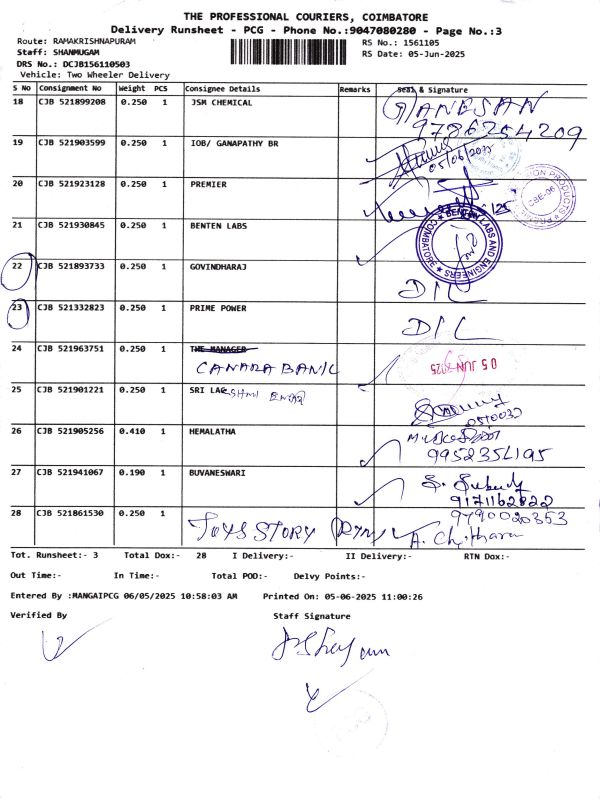 THE PROFESSIONAL COURIERS, COIMBATORE
Delivery Runsheet - PCG - Phone No.:9047080280 - Page No.:3
Route: RAMAKRISHNAPURAM RS No.: 1561105
Staff: SHANMUGAM RS Date: 05-Jun-2025
DRS No.: DCJB156110503
Vehicle: Two Wheeler Delivery
S No Consignment No Weight PCS Consignee Details Remarks Seal & Signature
18 CJB 521899208 0.250 1 JSM CHEMICAL GANESAN
9786254209
19 CJB 521903599 0.250 1 IOB/ GANAPATHY BR
05/06/2025
20 CJB 521923128 0.250 1 PREMIER
CBE-06
21 CJB 521930845 0.250 1 BENTEN LABS BENTEN LABS AND ENGINEERS COIMBATORE
22 CJB 521893733 0.250 1 GOVINDHARAJ DIL
23 CJB 521332823 0.250 1 PRIME POWER DIL
24 CJB 521963751 0.250 1 THE MANAGER
CANARA BANK 05 JUN 2025
25 CJB 521901221 0.250 1 SRI LAC
26 CJB 521905256 0.410 1 HEMALATHA
9952354195
27 CJB 521941067 0.190 1 BUVANESWARI
9171162822
28 CJB 521861530 0.250 1 TOYS STORY 9790020353
A. Chitharan
Tot. Runsheet:- 3 Total Dox:- 28 I Delivery:- II Delivery:- RTN Dox:-
Out Time:- In Time:- Total POD:- Delvy Points:-
Entered By :MANGAIPCG 06/05/2025 10:58:03 AM Printed On: 05-06-2025 11:00:26
Verified By Staff Signature